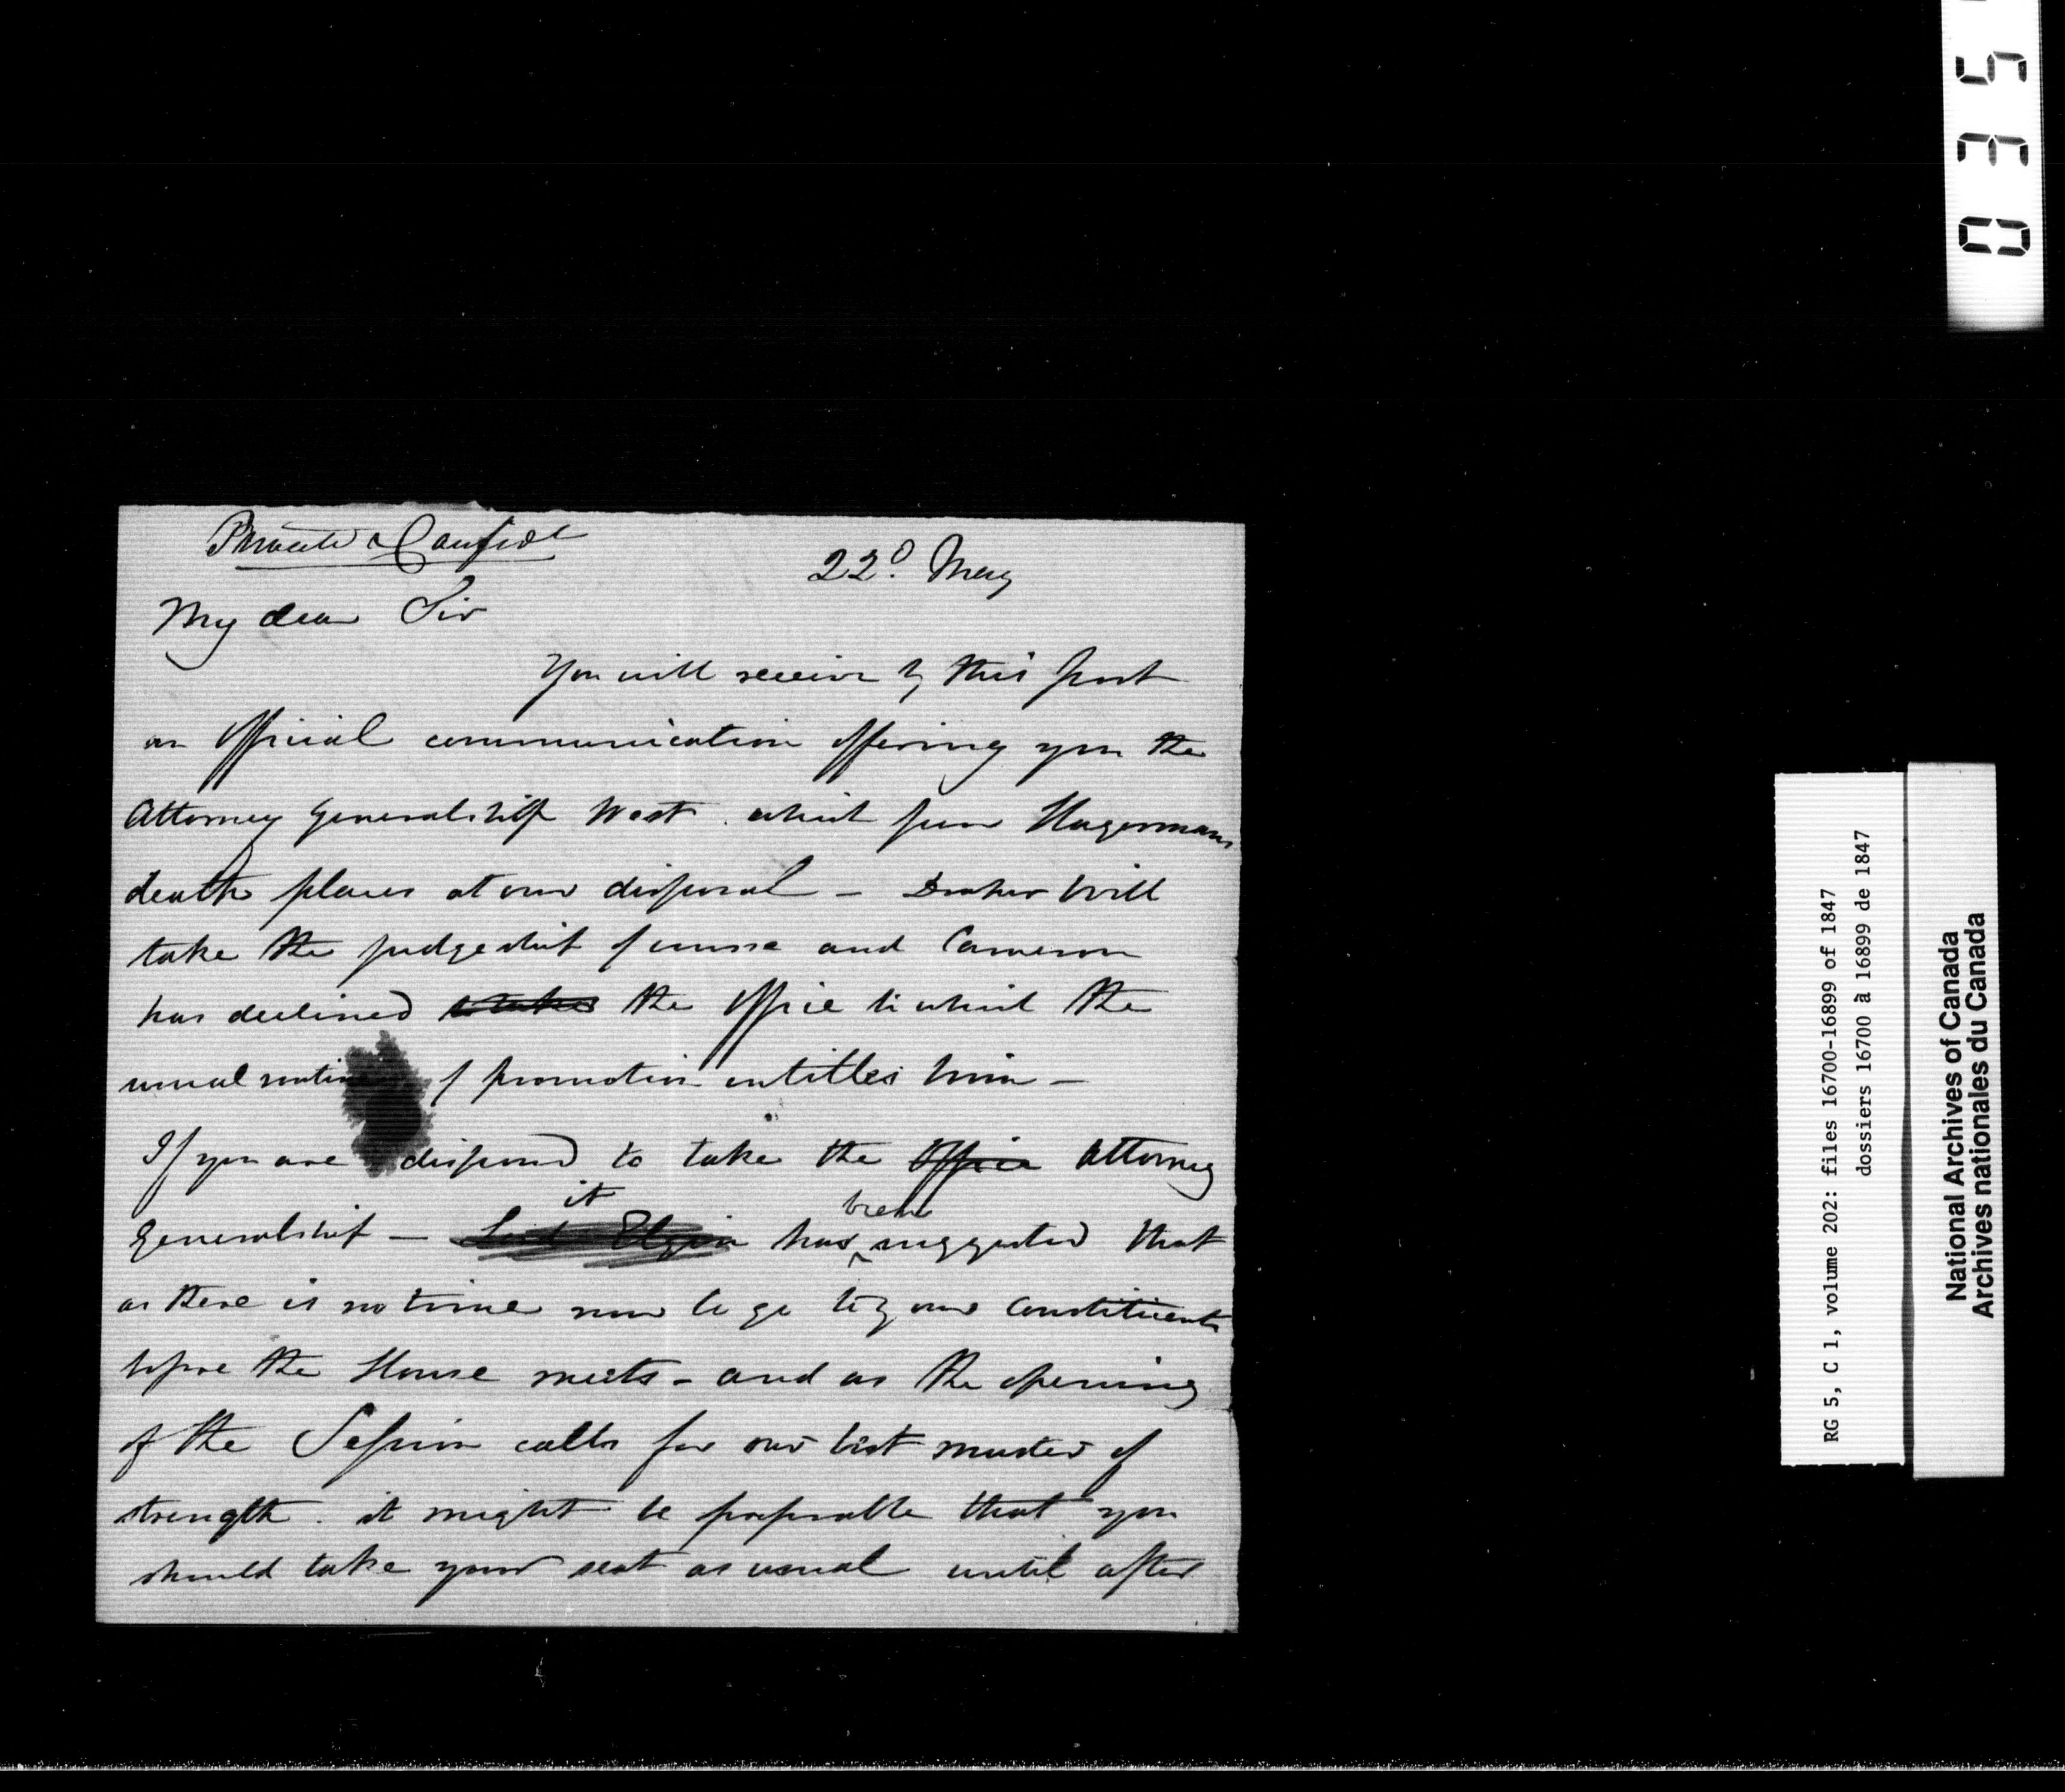 Private & Confidl
22d. May
My dear Sir
You will receive by this post
an Official communication offering you the
Attorney Generalship West. which poor Hagermans
death places at our disposal — Draper will
take the judgeship of course and Cameron
has declined to take the Office to which the
usual routine of promotion entitles him —
If you are disposed to take the Office Attorney
Generalship — Lord Elgin it has been suggested that
as there is no time now to go to your Constituents
before the House meets - and as the opening
of the Session calls for our best muster of
strength. it might be preferable that you
should take your seat as usual until after
0 3 5
RG 5, C 1, volume 202: files 16700-16899 of 1847
dossiers 16700 à 16899 de 1847
National Archives of Canada
Archives nationales du Canada